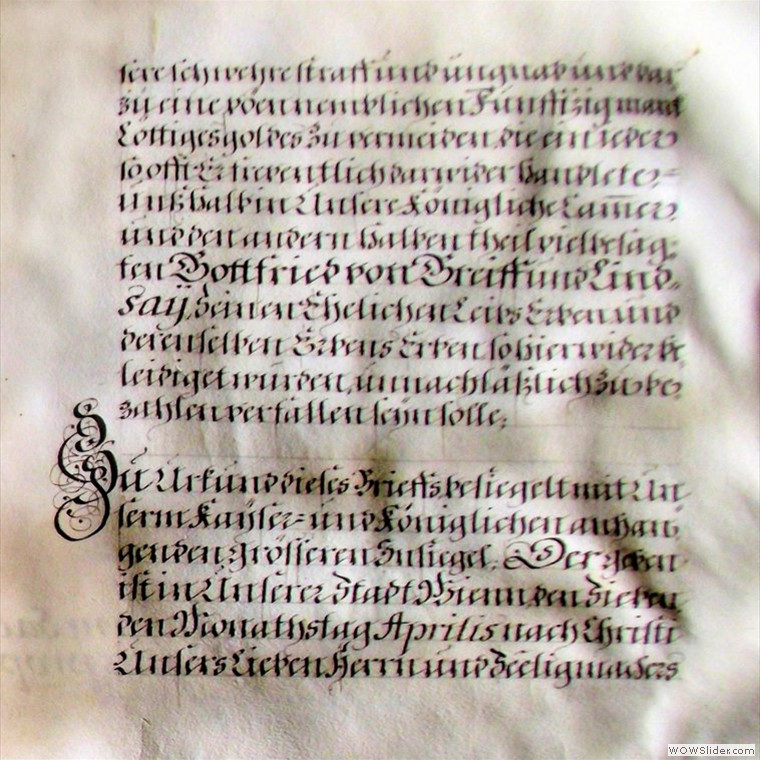 sere schwehre straff und ungnad und dar
zu eine pöen nemblichen Funffizig march
Lottiges goldes zu vermeiden, die ein ieder
so offt Er freventlich darwider handlete,
Unß halb in Unsere Königliche Cammer,
und den andern halben theil vielbesag,
ten Gottfried von Greiff und Lind,
saÿ, deinen Ehelichen Leibs Erben und
derenselben Erbens Erben so hierwider be
leidiget wurden, unnachläßlich zu be,
zahlen verfallen seÿn solle;
Zu Urkund dieses Brieffs besiegelt mit Un
serm Kaÿser- und Königlichen anhan,
genden grösseren Insiegel, Der geben
ist in Unserer Stadt Wienn, den Sieben
den Monathstag Aprilis nach Christi
Unsers Lieben Herrn und Seeligmachers
WOWSlider.com